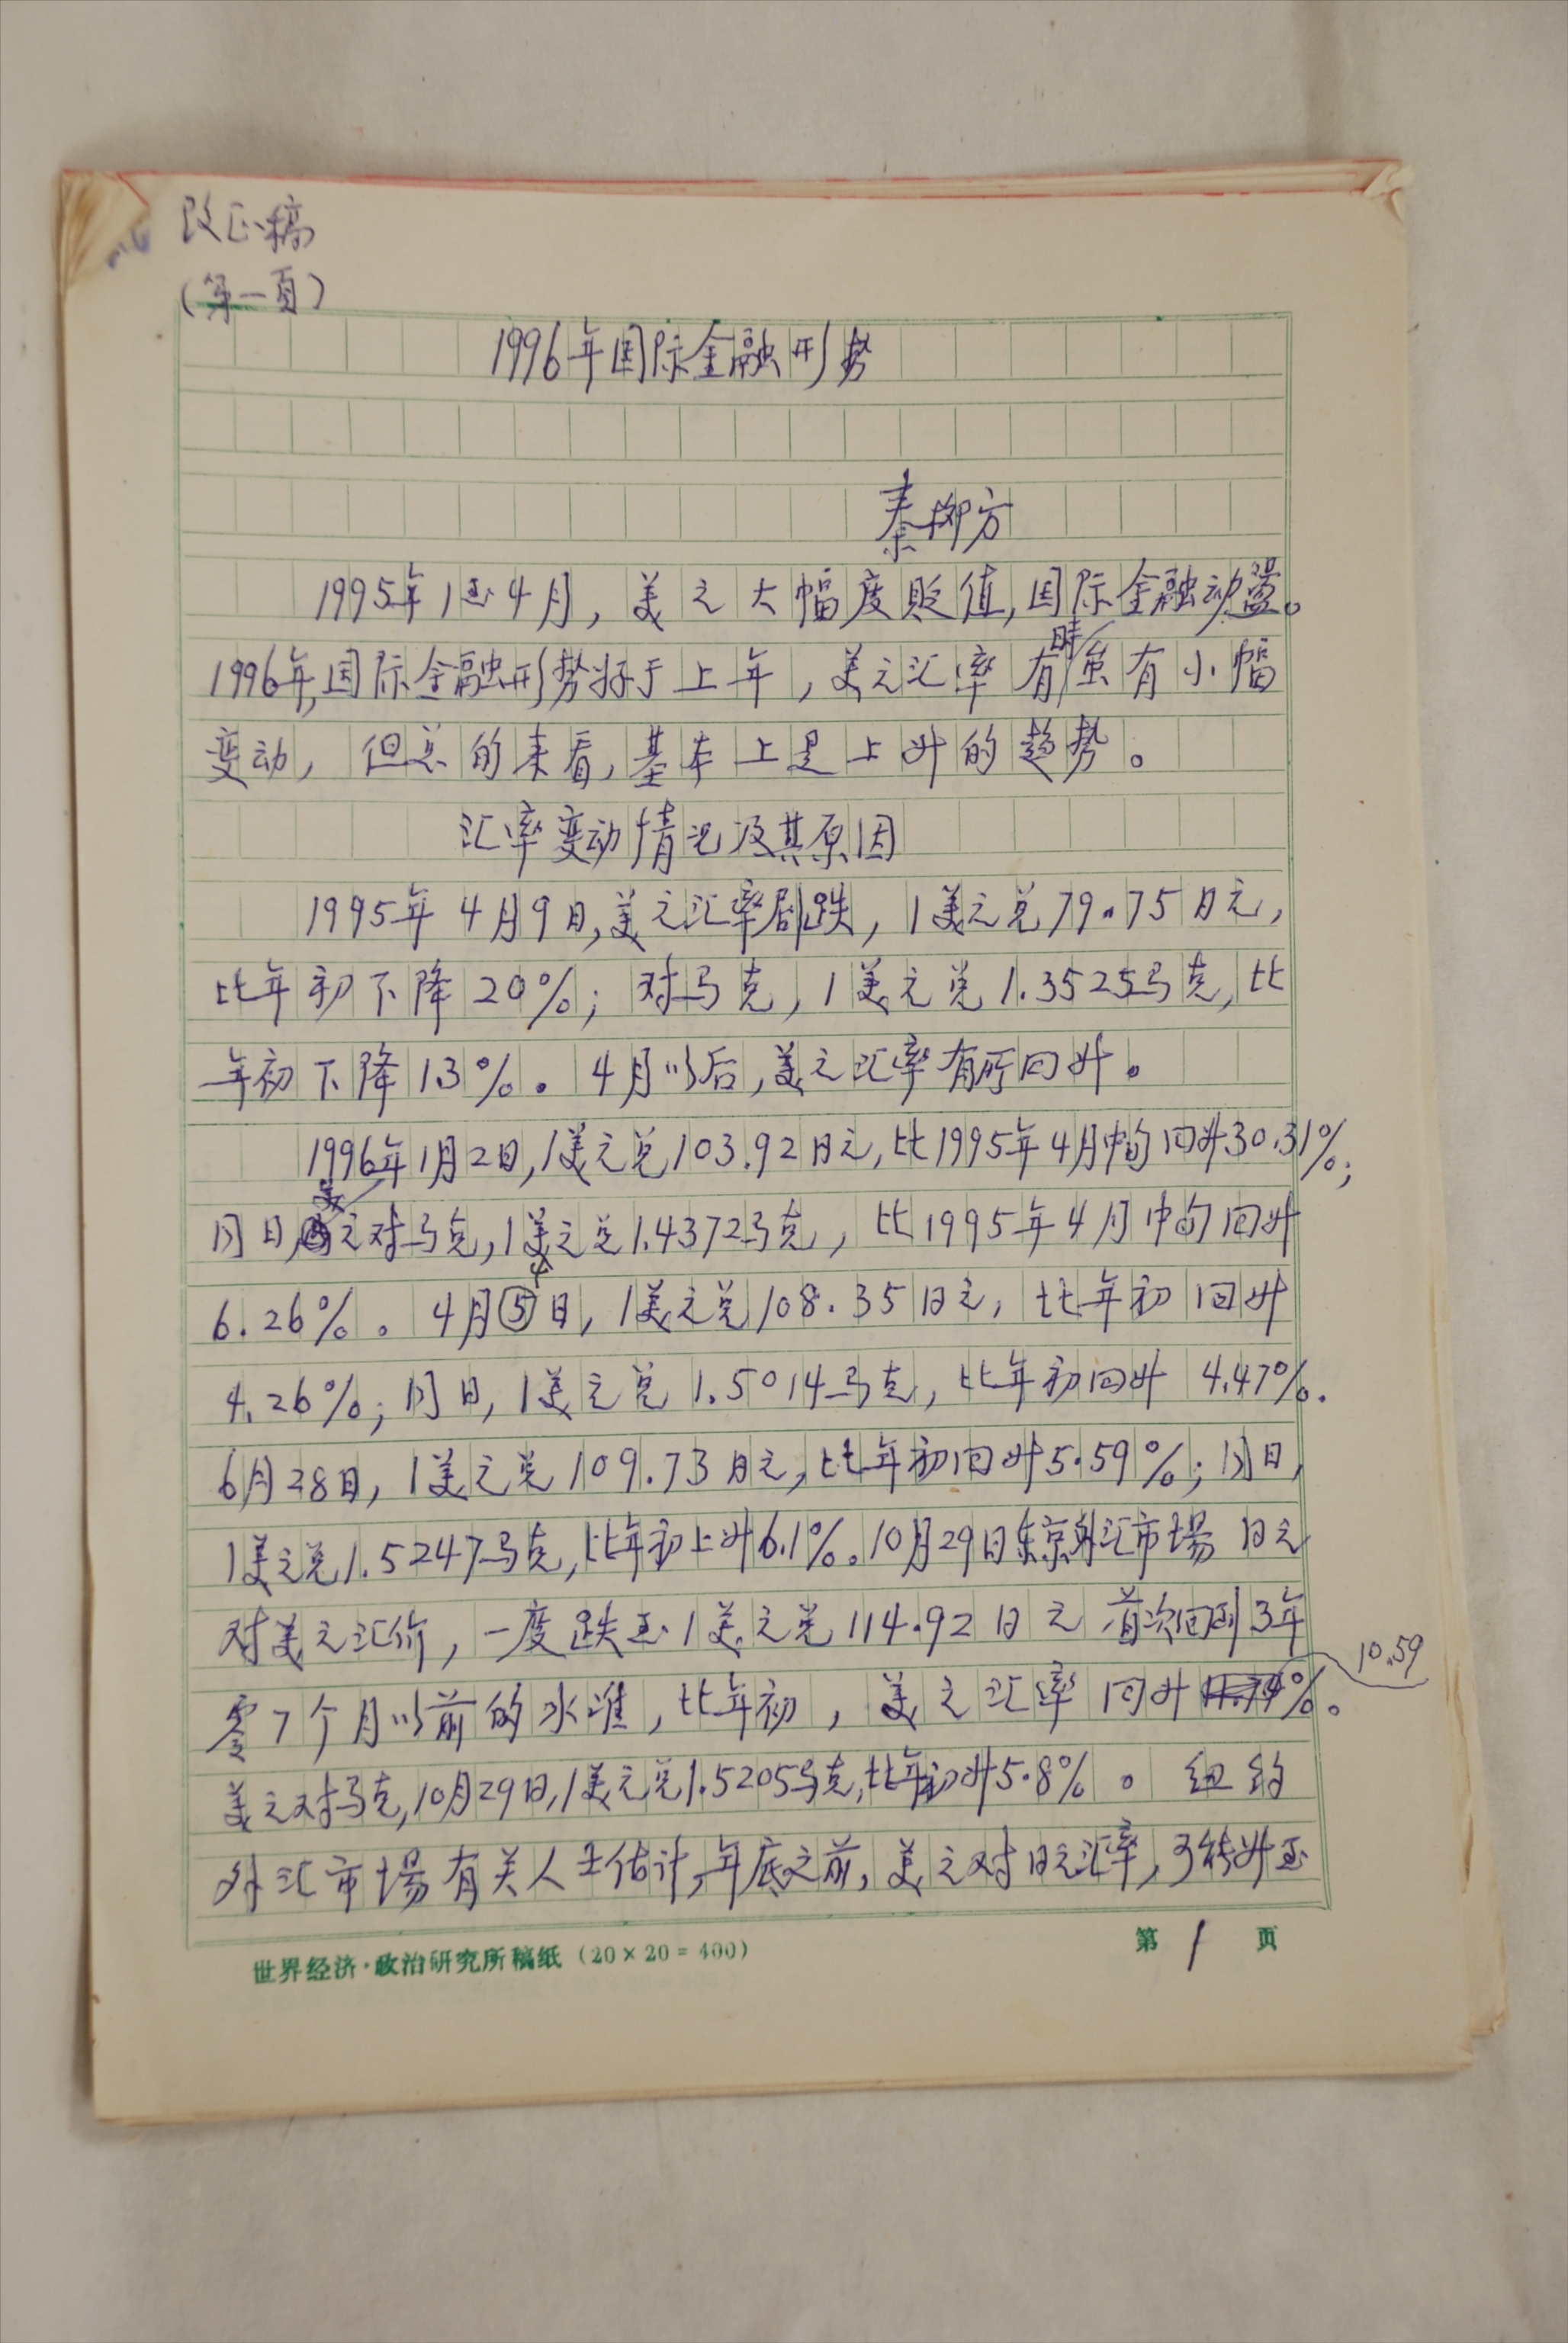 改正稿
(第一页)
1996年国际金融形势
秦柳方
1995年1至4月,美元大幅度贬值,国际金融动盪。
1996年,国际金融形势好于上年,美元汇率有时虽有小幅
变动,但总的来看,基本上是上升的趋势。
汇率变动情况及其原因
1995年4月9日,美元汇率剧跌,1美元兑79.75日元,
比年初下降20%;对马克,1美元兑1.3525马克,比
年初下降13%。4月以后,美元汇率有所回升。
1996年1月2日,1美元兑103.92日元,比1995年4月中旬回升30.31%;
同日,美元对马克,1美元兑1.4372马克,比1995年4月中旬回升
6.26%。4月⑤日,1美元兑108.35日元,比年初回升
4.26%;同日,1美元兑1.5014马克,比年初回升4.47%.
6月28日,1美元兑109.73日元,比年初回升5.59%;同日,
1美元兑1.5247马克,比年初上升6.1%。10月29日东京外汇市场日元
对美元汇价,一度跌至1美元兑114.92日元首次回到3年
零7个月以前的水准,比年初,美元汇率回升10.59%。
美元对马克,10月29日,1美元兑1.5205马克,比年初升5.8%。纽约
外汇市场有关人士估计,年底之前,美元对日元汇率,可转升至
世界经济·政治研究所稿纸(20×20=400)
第1页